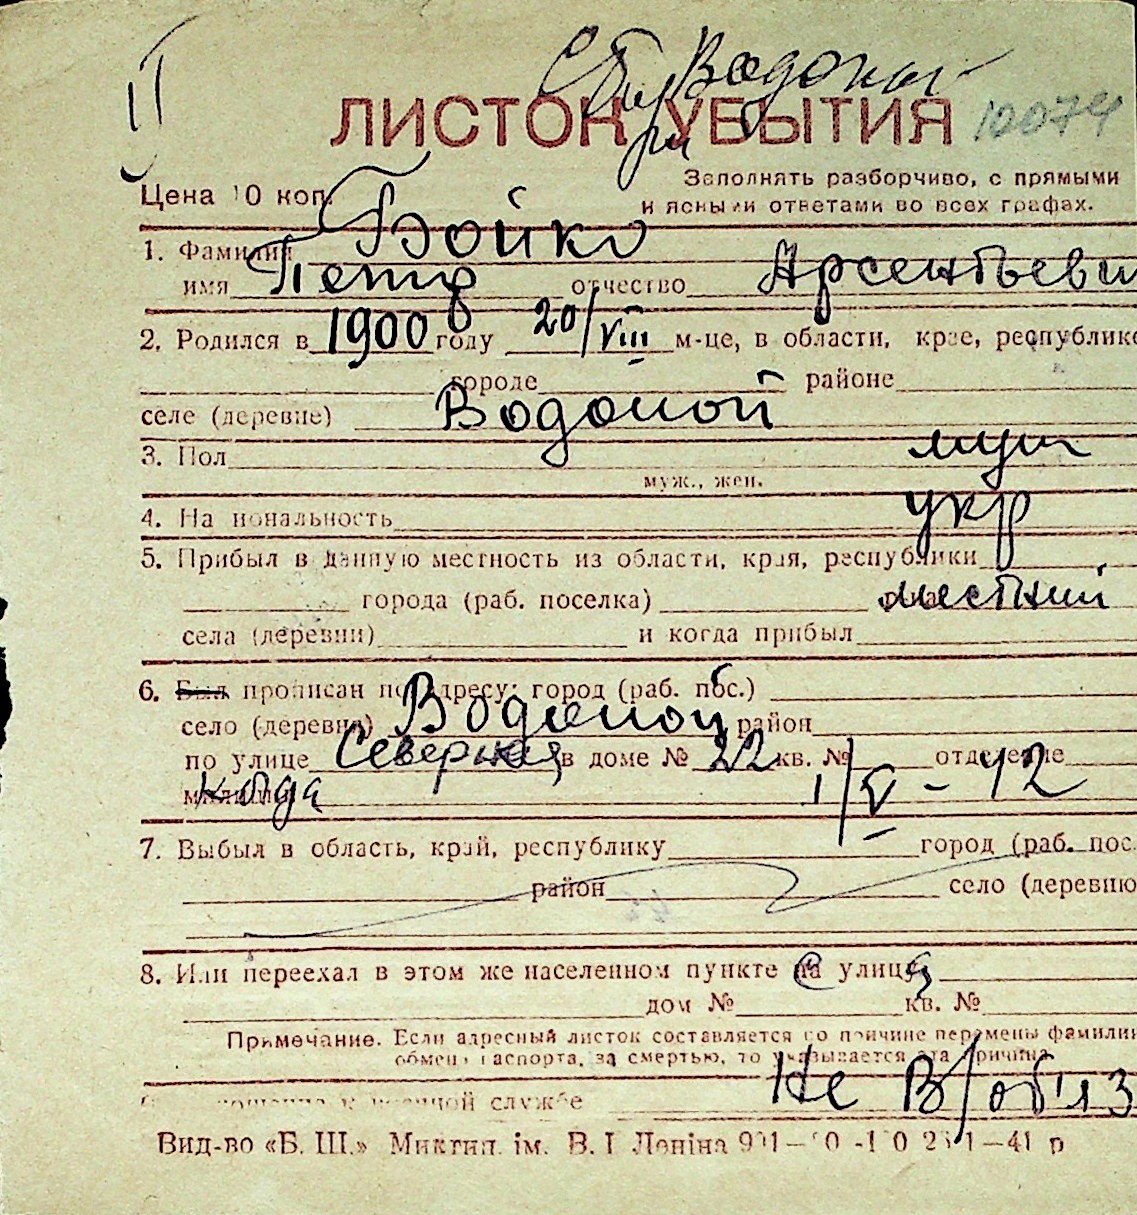 Водопой
ЛИСТОК УБЫТИЯ 10074
Цена 10 коп. Заполнять разборчиво, с прямыми
и ясными ответами во всех графах.
1. Фамилия Бойко
имя Петр отчество Арсентьеви
2. Родился в 1900 году 20/VIII м-це, в области, крае, республике
городе районе
селе (деревне) Водопой
3. Пол муж
муж., жен.
4. Национальность укр
5. Прибыл в данную местность из области, края, республики
города (раб. поселка) местный
села (деревни) и когда прибыл
6. Был прописан по адресу: город (раб. пос.)
село (деревня) Водопой район
по улице Северная в доме № 22 кв. № отделение
милиции когда 1/V-42
7. Выбыл в область, край, республику город (раб. пос.
район село (деревню
8. Или переехал в этом же населенном пункте на улицу
дом № кв. №
Примечание. Если адресный листок составляется по причине перемены фамилии
обмена паспорта, за смертью, то указывается эта причина
военной службе Не в/об'яз
Вид-во «Б. Ш.» Микгип. ім. В. І Леніна